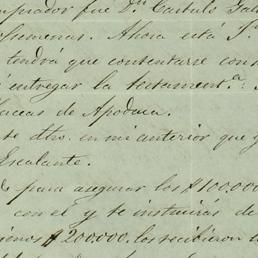 mprador fué Dn. Castulo
Ahora está
tendrá que contentarse con
entregar la testamenta.
de Apodaca.
te dho. en mi anterior que
Escalante.
para asegurar los $100.000
con el y te instruirás de
$200.000. los recibieron